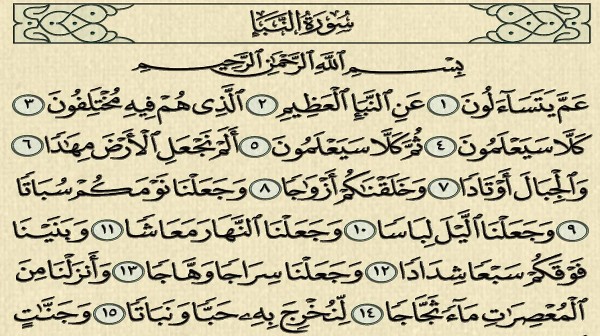 سُورَةُ النَّبَإِ
بِسْمِ ٱللَّهِ ٱلرَّحْمَٰنِ ٱلرَّحِيمِ
عَمَّ يَتَسَآءَلُونَ ١ عَنِ ٱلنَّبَإِ ٱلْعَظِيمِ ٢ ٱلَّذِى هُمْ فِيهِ مُخْتَلِفُونَ ٣
كَلَّا سَيَعْلَمُونَ ٤ ثُمَّ كَلَّا سَيَعْلَمُونَ ٥ أَلَمْ نَجْعَلِ ٱلْأَرْضَ مِهَٰدًا ٦
وَٱلْجِبَالَ أَوْتَادًا ٧ وَخَلَقْنَٰكُمْ أَزْوَٰجًا ٨ وَجَعَلْنَا نَوْمَكُمْ سُبَاتًا
٩ وَجَعَلْنَا ٱلَّيْلَ لِبَاسًا ١٠ وَجَعَلْنَا ٱلنَّهَارَ مَعَاشًا ١١ وَبَنَيْنَا
فَوْقَكُمْ سَبْعًا شِدَادًا ١٢ وَجَعَلْنَا سِرَاجًا وَهَّاجًا ١٣ وَأَنزَلْنَا مِنَ
ٱلْمُعْصِرَٰتِ مَآءً ثَجَّاجًا ١٤ لِّنُخْرِجَ بِهِۦ حَبًّا وَنَبَاتًا ١٥ وَجَنَّٰتٍ